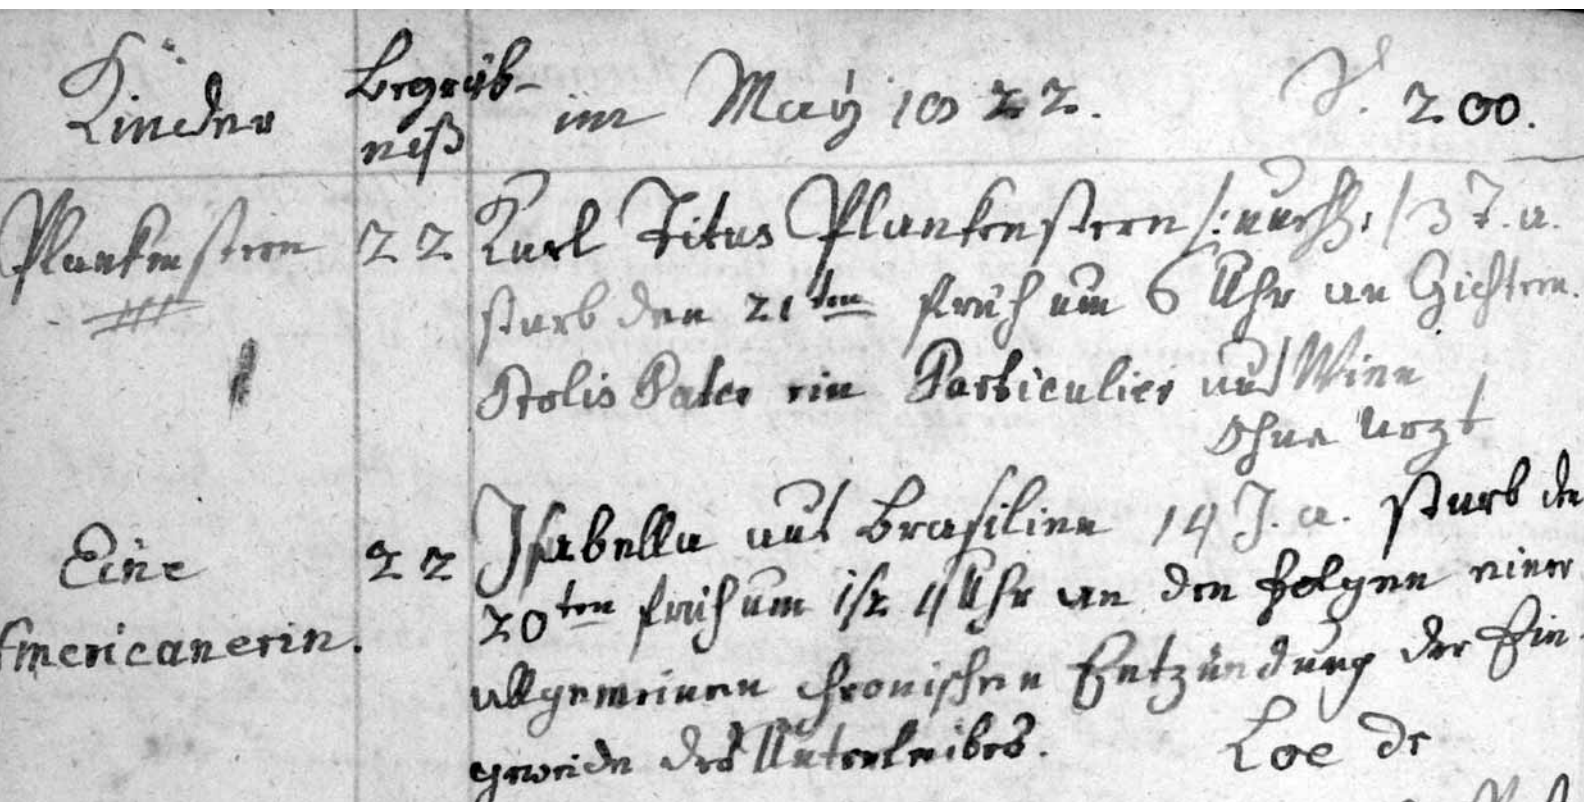 Kinder Begräb- im May 1822. S. 200.
niß
Plankenstern 22 Karl Titus Plankenstern /: unehl: / 3 T. a.
starb den 21ten früh um 6 Uhr an Gichtern.
Prolis Pater ein Particulier aus Wien
Ohne Arzt
Eine 22 Isabella aus Brasilien 14 J. a. starb den
Americanerin. 20ten früh um 1/2 4 Uhr an den Folgen einer
allgemeinen chronischen Entzündung der Ein-
geweide des Unterleibes. Loe dr